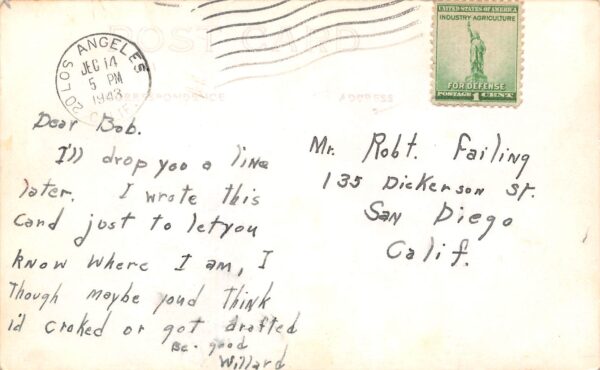 POST CARD
20 LOS ANGELES
DEC 14
5 PM
1943
CALIF.
UNITED STATES OF AMERICA
INDUSTRY-AGRICULTURE
FOR DEFENSE
POSTAGE 1 CENT
CORRESPONDENCE
ADDRESS
Dear Bob.
I'll drop you a line
later. I wrote this
Card just to let you
know where I am, I
Though maybe youd Think
i'd croked or got drafted
Be. good
Willard
Mr. Robt. Failing
135 Dickerson St.
San Diego
Calif.